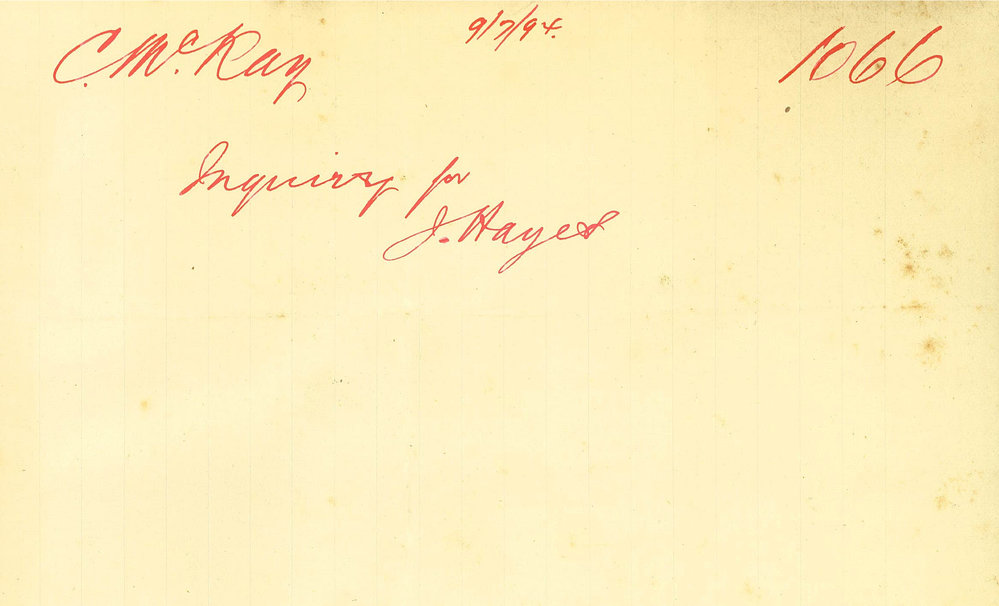 9/7/94.
C. McKay 1066
Inquiry for
J. Hayes